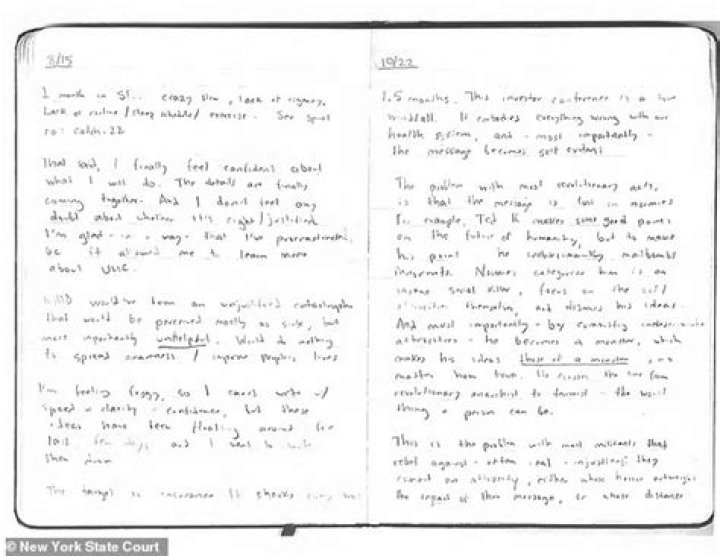 8/15
1 month in SF.. crazy slow, lack of
Lack of routine / sleep schedule / exercise. See
catch-22
That said, I finally feel confident about
what I will do. The details are finally
coming together. And I don't feel any
doubt about whether it's right / justified.
I'm glad - in a way - that I've procrastinated,
bc it allowed me to learn more
about UHC.
would've been an unjustified catastrophe
that would be perceived mostly as sick, but
more importantly unhelpful. Would do nothing
to spread awareness / improve people's lives
I'm feeling foggy, so I can't write w/
speed + clarity + confidence, but these
ideas have been floating around for
last few days and I want to write
them down
The target is insurance. It checks every box
10/22
1.5 months. This investor conference is a true
windfall. It embodies everything wrong with our
health system, and - most importantly -
the message becomes self evident
The problem with most revolutionary acts,
is that the message is lost on normies
For example, Ted K makes some good points
on the future of humanity, but to make
his point he indiscriminately mailbombs
innocents. Normies categorize him as an
insane serial killer, focus on the
atrocities themselves, and dismiss his ideas.
And most importantly - by committing indiscriminate
atrocities - he becomes a monster, which
makes his ideas those of a monster, no
matter how true. He crosses the line from
revolutionary anarchist to terrorist - the worst
thing a person can be.
This is the problem with most militants that
rebel against - often real - injustices; they
commit an atrocity, either whose horror outweighs
the impact of their message, or whose distance
© New York State Court